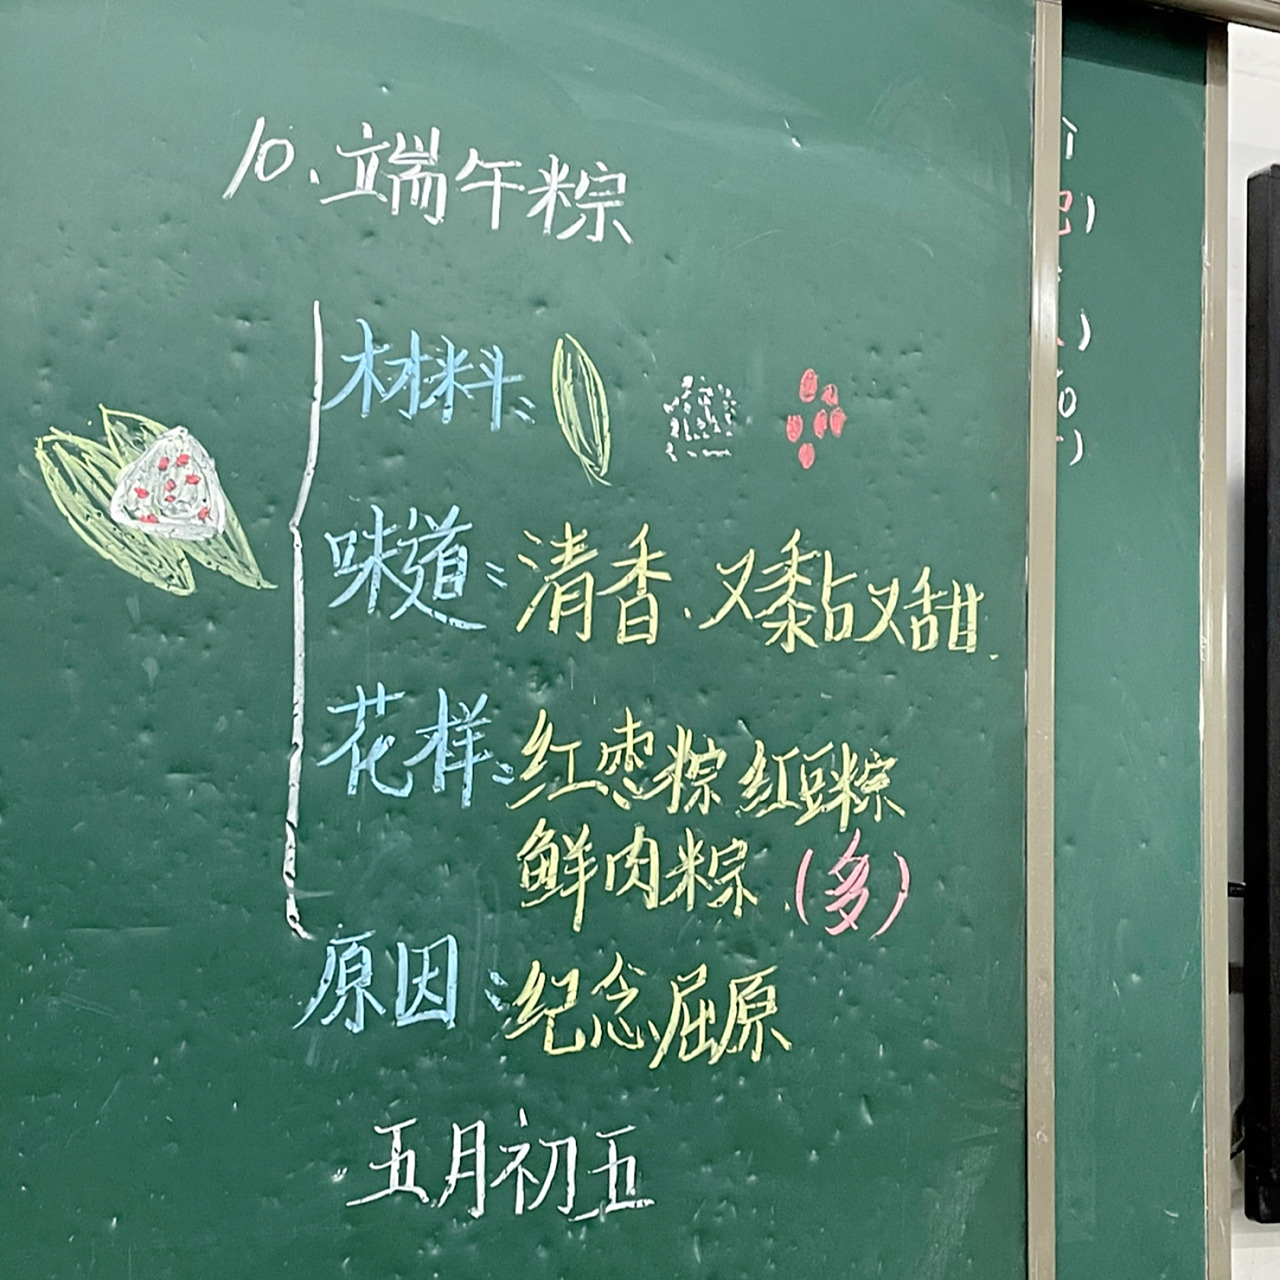 10.端午粽
材料:
味道:清香.又黏又甜.
花样:红枣粽 红豆粽
鲜肉粽(多)
原因:纪念屈原
五月初五